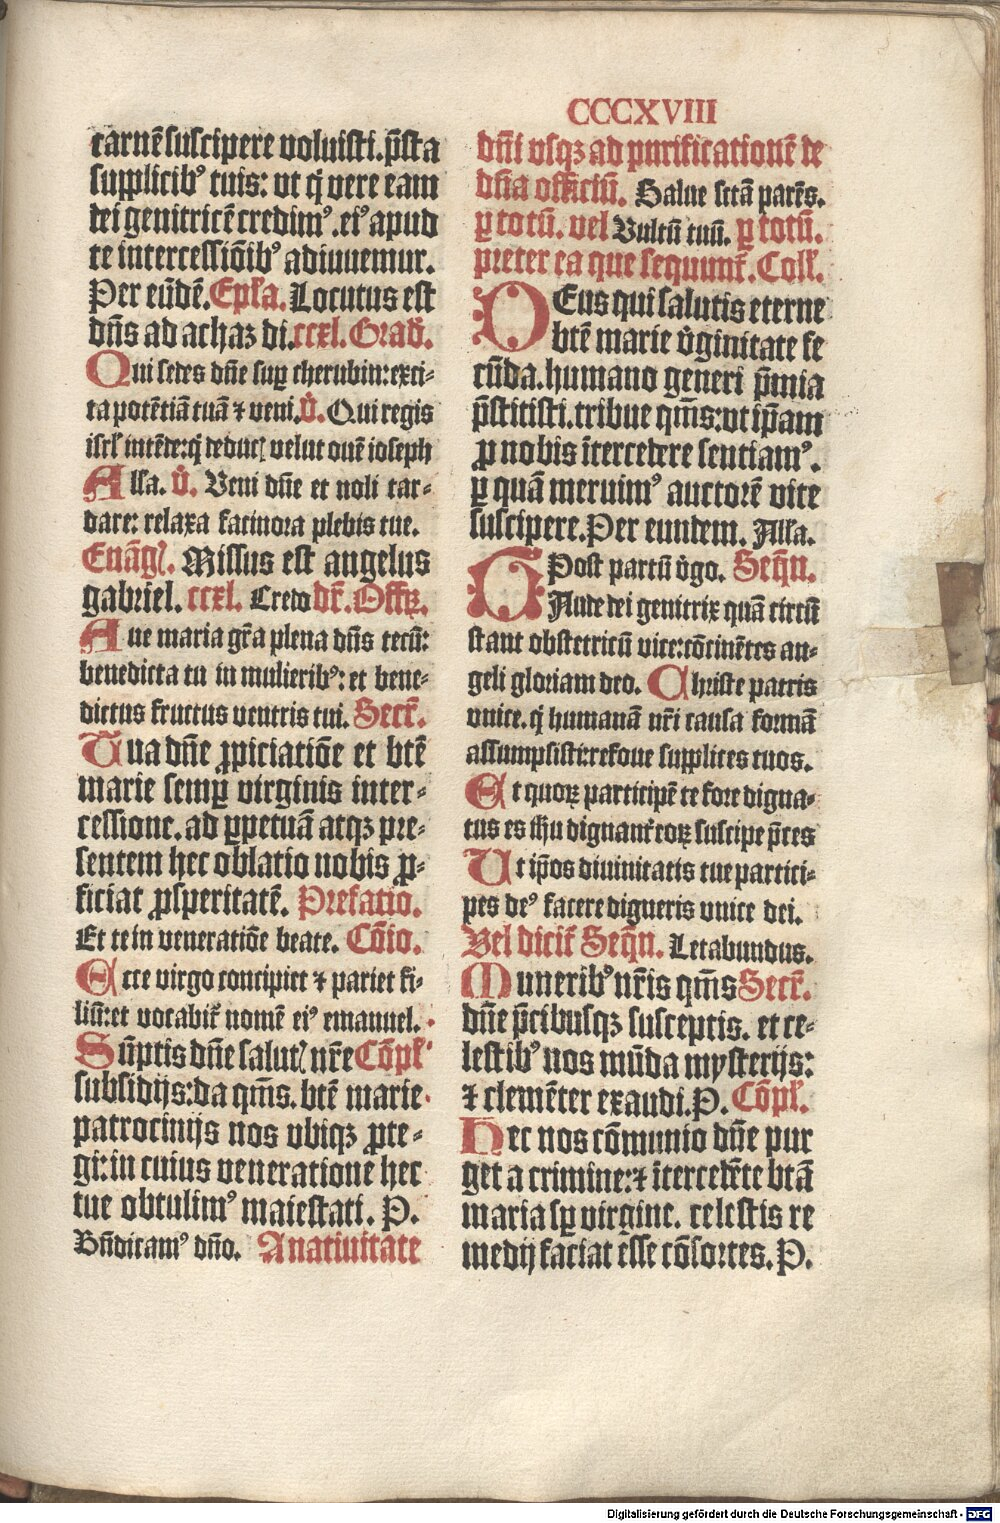 CCCXVIII
carnē suscipere voluisti. p̄sta
supplicibꝰ tuis: vt q̇ vere eam
dei genitricē credimꝰ. eiꝰ apud
te intercessiōibꝰ adiuuemur.
Per eūdē. Epl̄a. Locutus est
dn̄s ad achaz di. ccxl. Grad̄.
Qui sedes dn̄e suꝑ cherubin: exci-
ta potētiā tuā ⁊ veni. V̇. Qui regis
isrl̓ intēde: q̇ deduc̓ velut ouē ioseph
Alla. V̇. Veni dn̄e et noli tar-
dare: relaxa facinora plebis tue.
Euāgl̓. Missus est angelus
gabriel. ccxl. Credo dr̄. Offꝝ.
Aue maria gr̄a plena dn̄s tecū:
benedicta tu in mulieribꝰ: et bene-
dictus fructus ventris tui. Secr̄.
Tua dn̄e ꝓpiciatiōe et btē
marie semꝑ virginis inter-
cessione. ad ꝑpetuā atqꝫ pre-
sentem hec oblatio nobis ꝓ-
ficiat ꝓsperitatē. Prefatio.
Et te in veneratiōe beate. Cōio.
Ecce virgo concipiet ⁊ pariet fi-
liū: et vocabit̄ nomē eiꝰ emanuel.
Sūptis dn̄e salut̓ nr̄e Cōpl̓
subsidijs: da qm̄s. btē marie
patrocinijs nos vbiqꝫ ꝓte-
gi: in cuius veneratione hec
tue obtulimꝰ maiestati. P.
Bn̄dicamꝰ dn̄o. A natiuitate
dn̄i vsqꝫ ad purificationē de
dn̄a officiū. Salue sctā parēs.
ꝑ totū. vel Vultū tuū. ꝑ totū.
preter ea que sequunt̄. Coll̓.
DEus qui salutis eterne
btē marie v̇ginitate fe
cūda. humano generi p̄mia
p̄stitisti. tribue qm̄s: vt ip̄am
ꝓ nobis ītercedere sentiamꝰ.
ꝑ quā meruimꝰ auctorē vite
suscipere. Per eundem. Alla.
Post partū v̇go. Seqn̄.
GAude dei genitrix quā circū
stant obstetricū vice: cōcinētes an-
geli gloriam deo. Christe patris
vnice. q̇ humanā nr̄i causa formā
assumpsisti: refoue supplices tuos.
Et quoꝝ participē te fore digna-
tus es ih̄u dignant̄ eoꝝ suscipe p̄ces
Ut ip̄os diuinitatis tue partici-
pes deꝰ facere digneris vnice dei.
Vel dicit̄ Seqn̄. Letabundus.
Muneribꝰ nr̄is qm̄s Secr̄.
dn̄e p̄cibusqꝫ susceptis. et ce-
lestibꝰ nos mūda mysterijs:
⁊ clemēter exaudi. P. Cōpl̓.
Hec nos cōmunio dn̄e pur
get a crimine: ⁊ ītercedēte btā
maria sꝑ virgine. celestis re
medij faciat esse cōsortes. P.
Digitalisierung gefördert durch die Deutsche Forschungsgemeinschaft - DFG